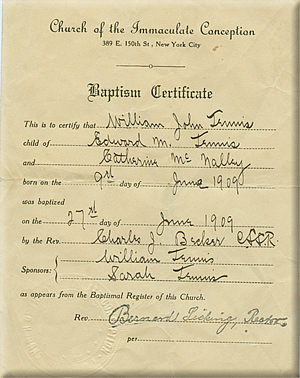 Church of the Immaculate Conception
389 E. 150th St., New York City
Baptism Certificate
This is to certify that William John Tennis
child of Edward M. Tennis
and Catherine Mc Nalley
born on the 9th day of June 1909
was baptized
on the 27th day of June 1909
by the Rev. Charles J. Becker C.S.S.R.
Sponsors: { William Tennis
Sarah Tennis
as appears from the Baptismal Register of this Church.
Rev. Bernard Licking, Rector
per